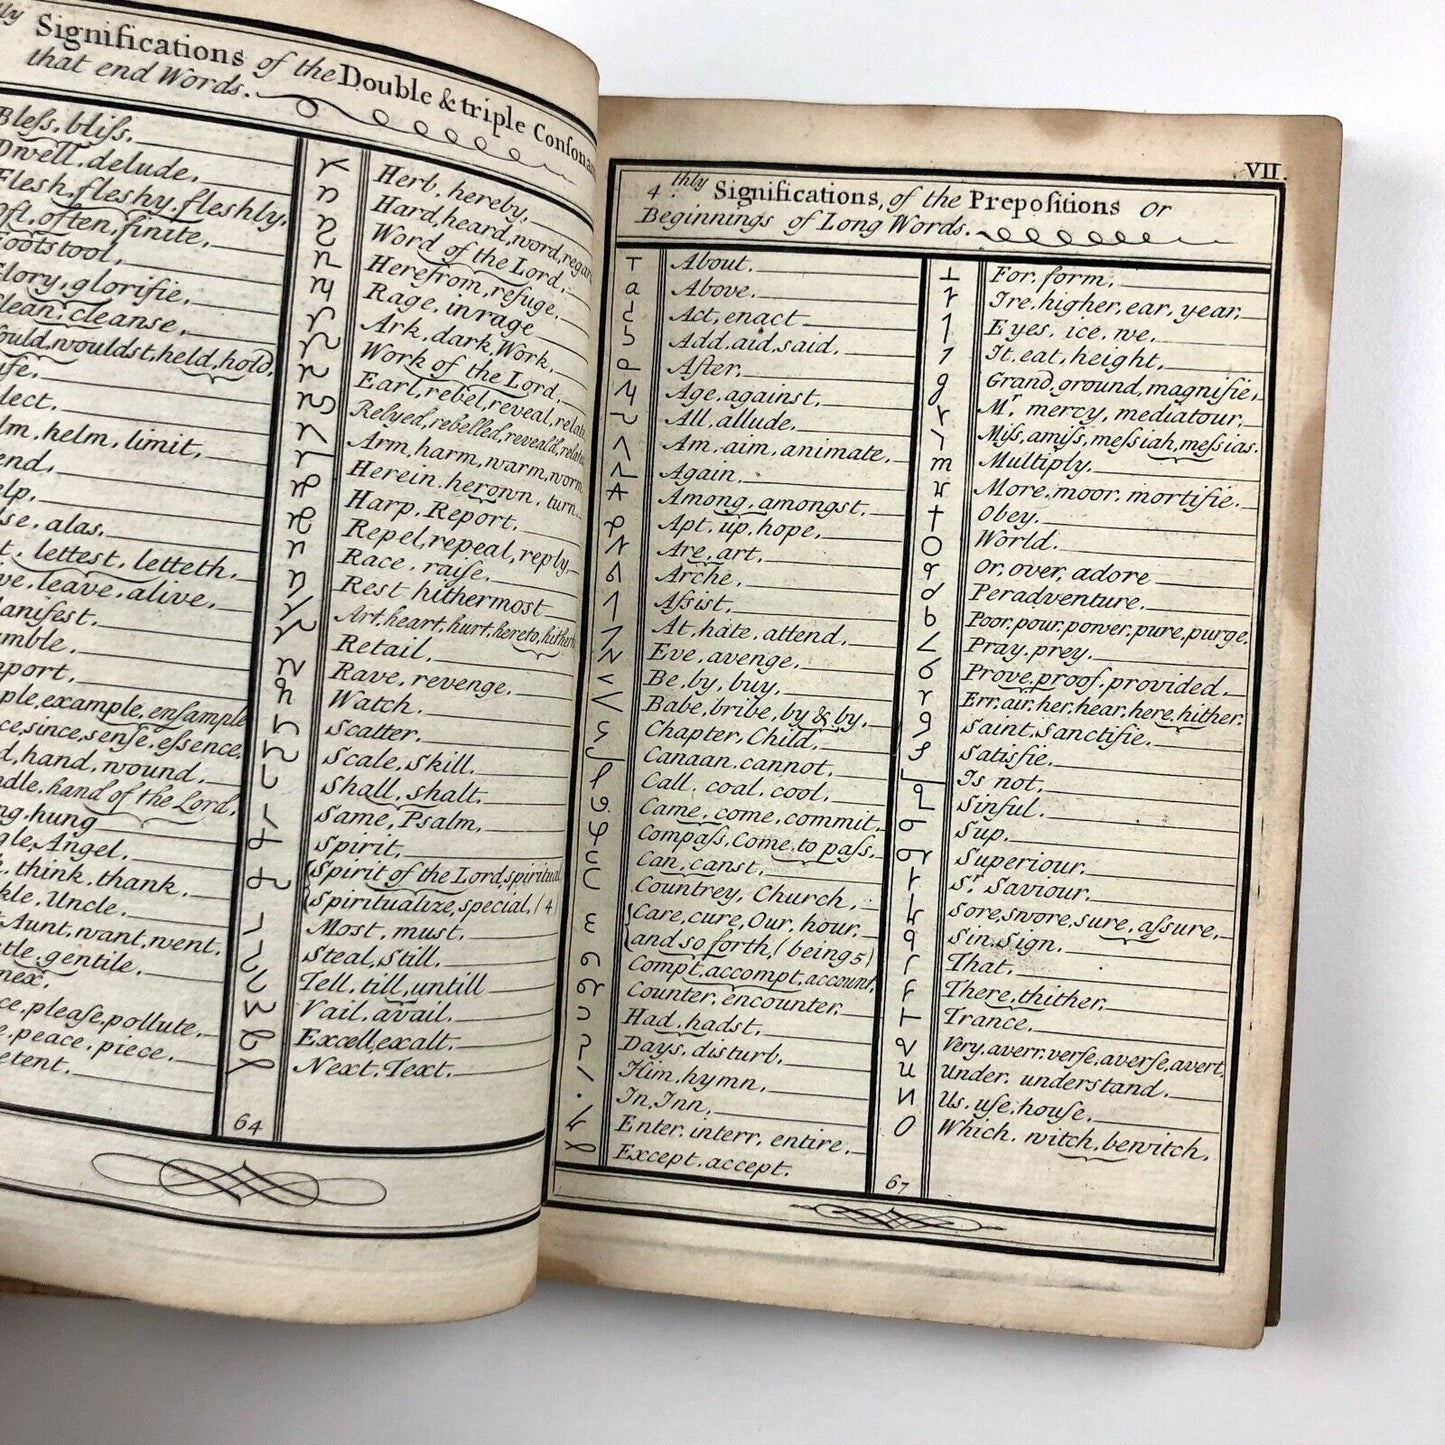 Significations of the Double & triple Conson
that end Words.
Bleſs, bliſs,
Dwell, delude,
Flesh, fleshy, fleshly,
Oft, often, finite,
Footstool,
Glory, glorifie,
Clean, cleanse,
wouldst, held, hold,
Limit,
helm, limit,
alas,
lettest, letteth,
leave, alive,
example, ensample
since, sense, essence,
hand, wound,
hand of the Lord,
hung
Angel,
think, thank,
Uncle,
Aunt, want, went,
gentile,
pleaſe, pollute,
peace, piece,
Herb, hereby,
Hard, heard, word, regar
Word of the Lord,
Herefrom, refuge,
Rage, inrage
Ark, dark, Work,
Work of the Lord,
Earl, rebel, reveal, relat
Relyed, rebelled, reveal'd, relate
Arm, harm, warm, worm
Herein, herown, turn,
Harp, Report,
Repel, repeal, reply,
Race, raiſe,
Rest hithermost
Art, heart, hurt, hereto, hither
Retail,
Rave, revenge,
Watch,
Scatter,
Scale, Skill,
Shall, shalt,
Same, Psalm,
Spirit,
Spirit of the Lord, spiritual
Spiritualize, special, (4)
Most, must,
Steal, Still,
Tell, till, untill
Vail, avail,
Excell, exalt,
Next, Text,
64
VII.
4.thly Significations, of the Prepoſitions or
Beginnings of Long Words.
About,
Above,
Act, enact
Add, aid, said,
After,
Age, against,
All, allude,
Am, aim, animate,
Again,
Among, amongst,
Apt, up, hope,
Are, art,
Arche,
Aſsist,
At, hate, attend,
Eve, avenge,
Be, by, buy,
Babe, bribe, by & by,
Chapter, Child,
Canaan, cannot,
Call, coal, cool,
Came, come, commit,
Compaſs, Come to paſs,
Can, canst,
Countrey, Church,
Care, cure, Our, hour,
and so forth, (being 5)
Compt, accompt, account,
Counter, encounter,
Had, hadst,
Days, disturb,
Him, hymn,
In, Inn,
Enter, interr, entire,
Except, accept,
For, form,
Ire, higher, ear, year,
Eyes, ice, we,
It, eat, height,
Grand, ground, magnifie,
Mr, mercy, mediatour,
Miſs, amiſs, meſsiah, meſsias,
Multiply,
More, moor, mortifie,
Obey,
World,
Or, over, adore
Peradventure,
Poor, pour, power, pure, purge,
Pray, prey,
Prove, proof, provided,
Err, air, her, hear, here, hither,
Saint, Sanctifie,
Satisfie,
Is not,
Sinful,
Sup,
Superiour,
Sr Saviour,
Sore, swore, sure, aſsure,
Sin, Sign,
That,
There, thither,
Trance,
Very, averr, verſe, averſe, avert,
Under, understand,
Us, uſe, houſe,
Which, witch, bewitch,
67